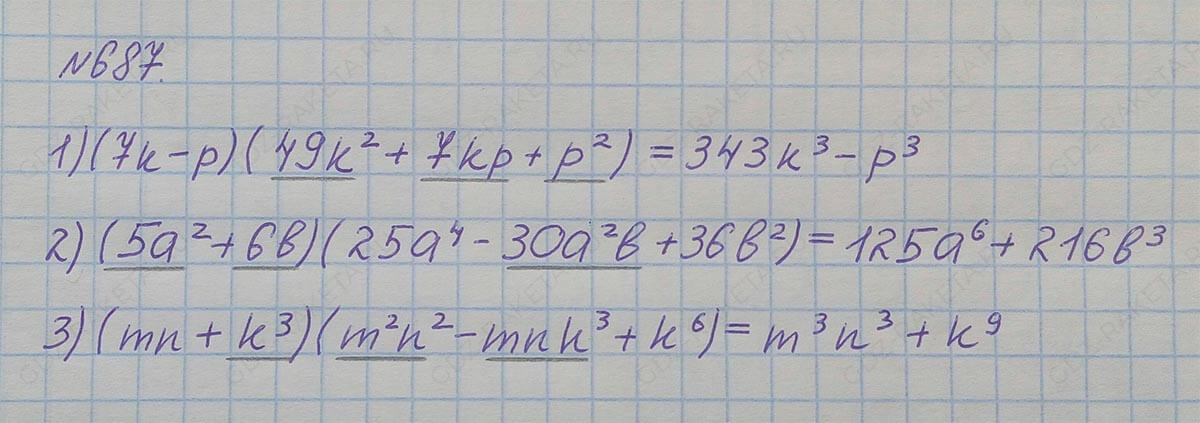 №687.
1) (7k - p)(49k² + 7kp + p²) = 343k³ - p³
2) (5a² + 6в)(25a⁴ - 30a²в + 36в²) = 125a⁶ + 216в³
3) (mn + k³)(m²n² - mnk³ + k⁶) = m³n³ + k⁹